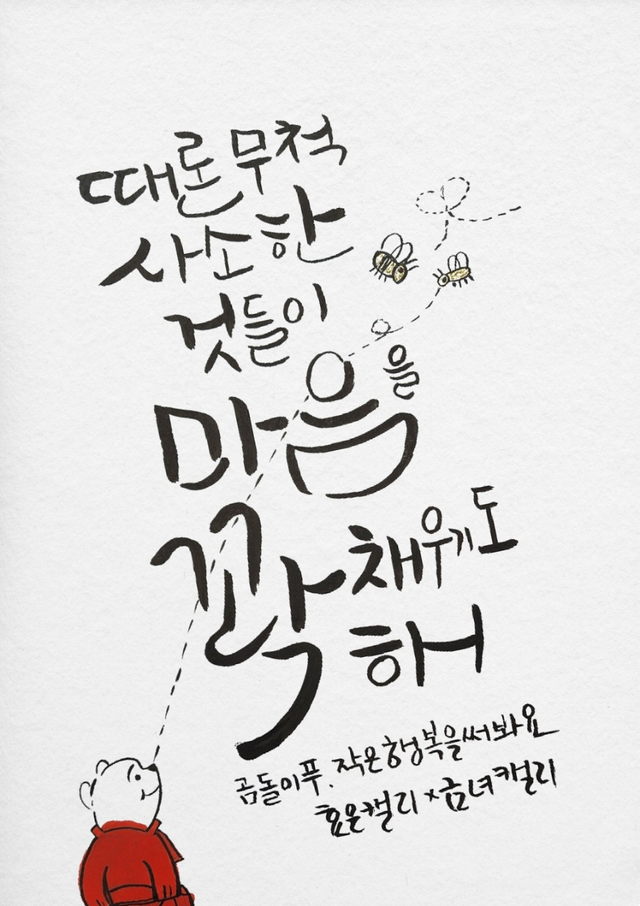 때론 무척
사소한
것들이
마음을
꽉 채우기도
해
곰돌이푸. 작은 행복을 써봐요
효은캘리 × 금녀캘리